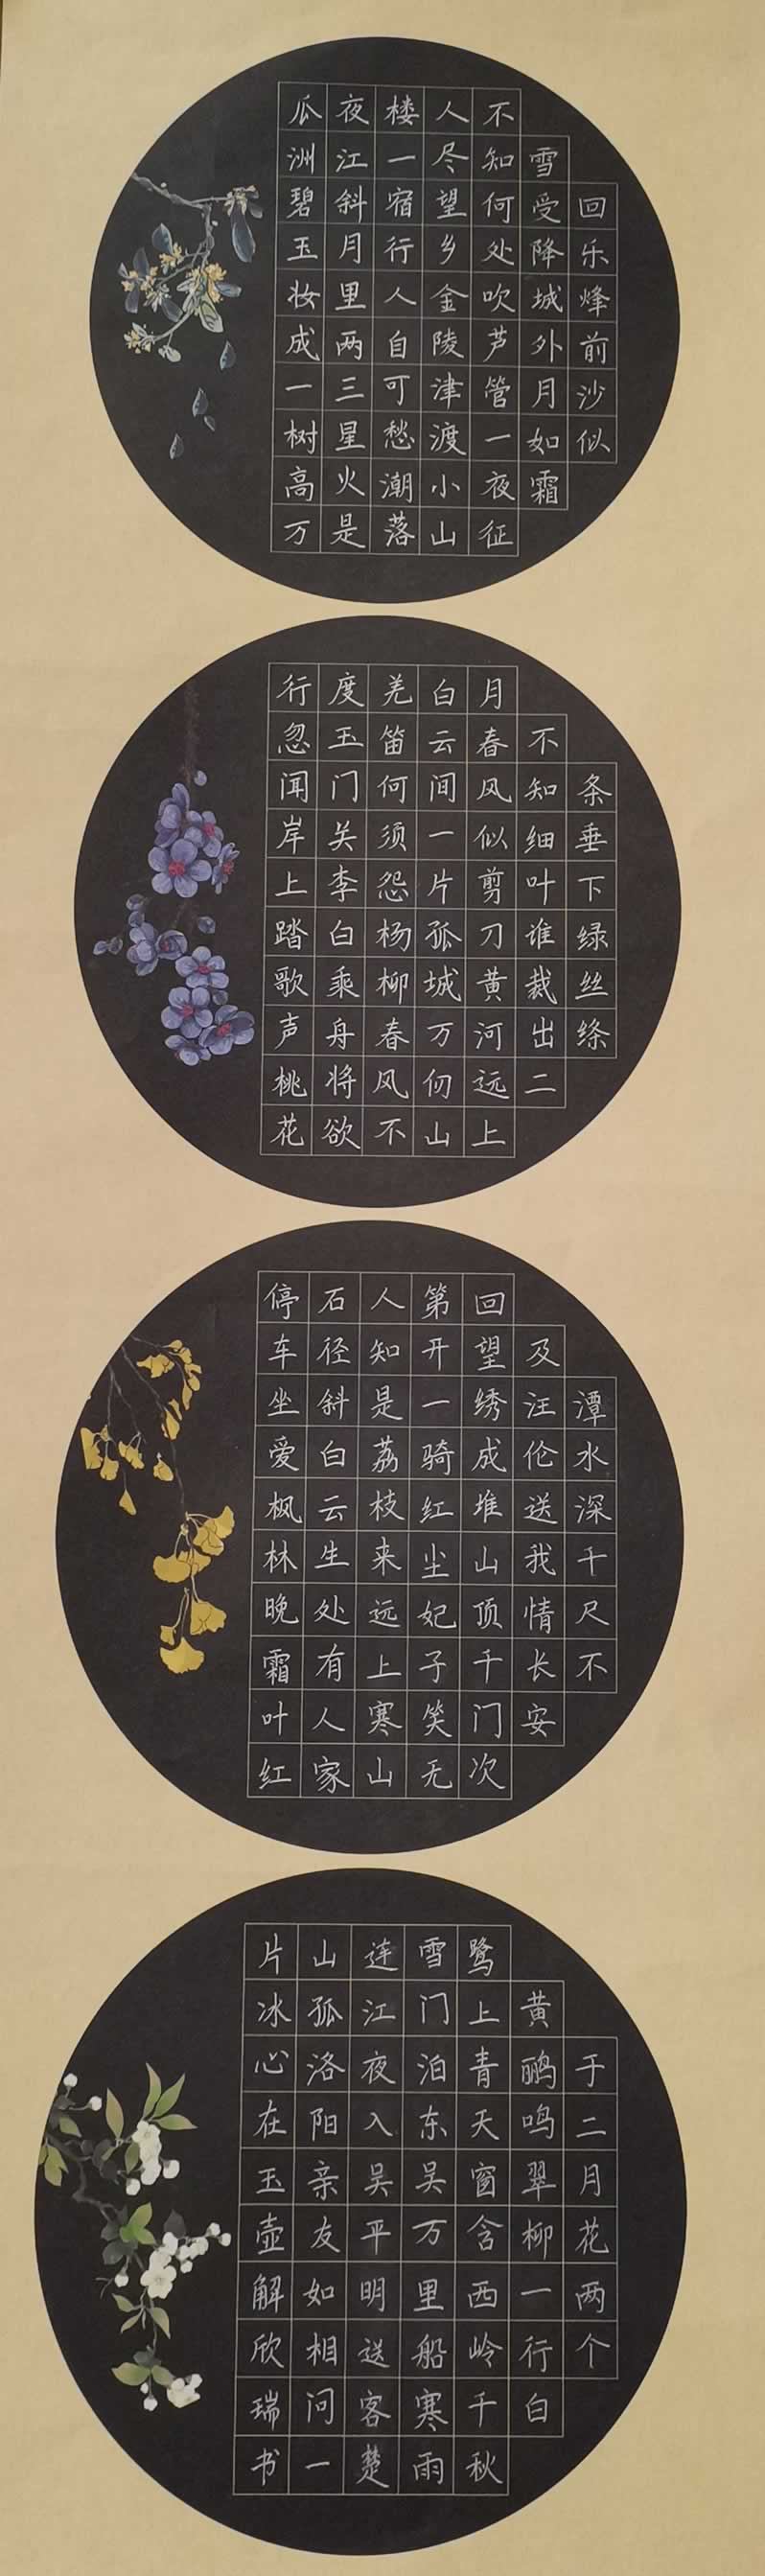 回乐烽前沙似
雪受降城外月如霜
不知何处吹芦管一夜征
人尽望乡金陵津渡小山
楼一宿行人自可愁潮落
夜江斜月里两三星火是
瓜洲碧玉妆成一树高万
条垂下绿丝绦
不知细叶谁裁出二
月春风似剪刀黄河远上
白云间一片孤城万仞山
羌笛何须怨杨柳春风不
度玉门关李白乘舟将欲
行忽闻岸上踏歌声桃花
潭水深千尺不
及汪伦送我情长安
回望绣成堆山顶千门次
第开一骑红尘妃子笑无
人知是荔枝来远上寒山
石径斜白云生处有人家
停车坐爱枫林晚霜叶红
于二月花两个
黄鹂鸣翠柳一行白
鹭上青天窗含西岭千秋
雪门泊东吴万里船寒雨
连江夜入吴平明送客楚
山孤洛阳亲友如相问一
片冰心在玉壶解欣瑞书